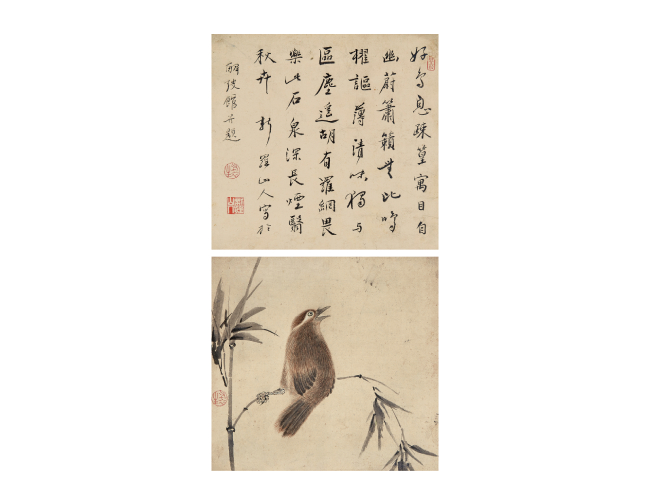 好鳥息踈篁寓目自
幽蔚簫籟無比鳴
櫂謳薄清味獨与
區塵遥胡有羅網畏
樂此石泉深長煙翳
秋卉 新羅山人寫於
解弢館并題